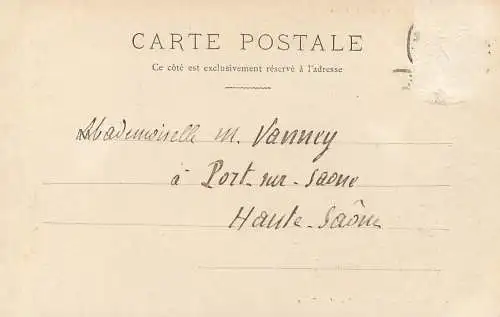 CARTE POSTALE
Ce côté est exclusivement réservé à l'adresse
Mademoiselle M. Vanney
à Port-sur-Saone
Haute-Saône